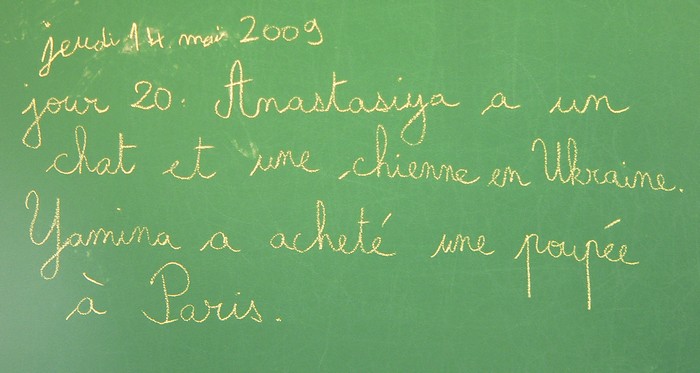 jeudi 14 mai 2009
jour 20. Anastasiya a un
chat et une chienne en Ukraine.
Yamina a acheté une poupée
à Paris.